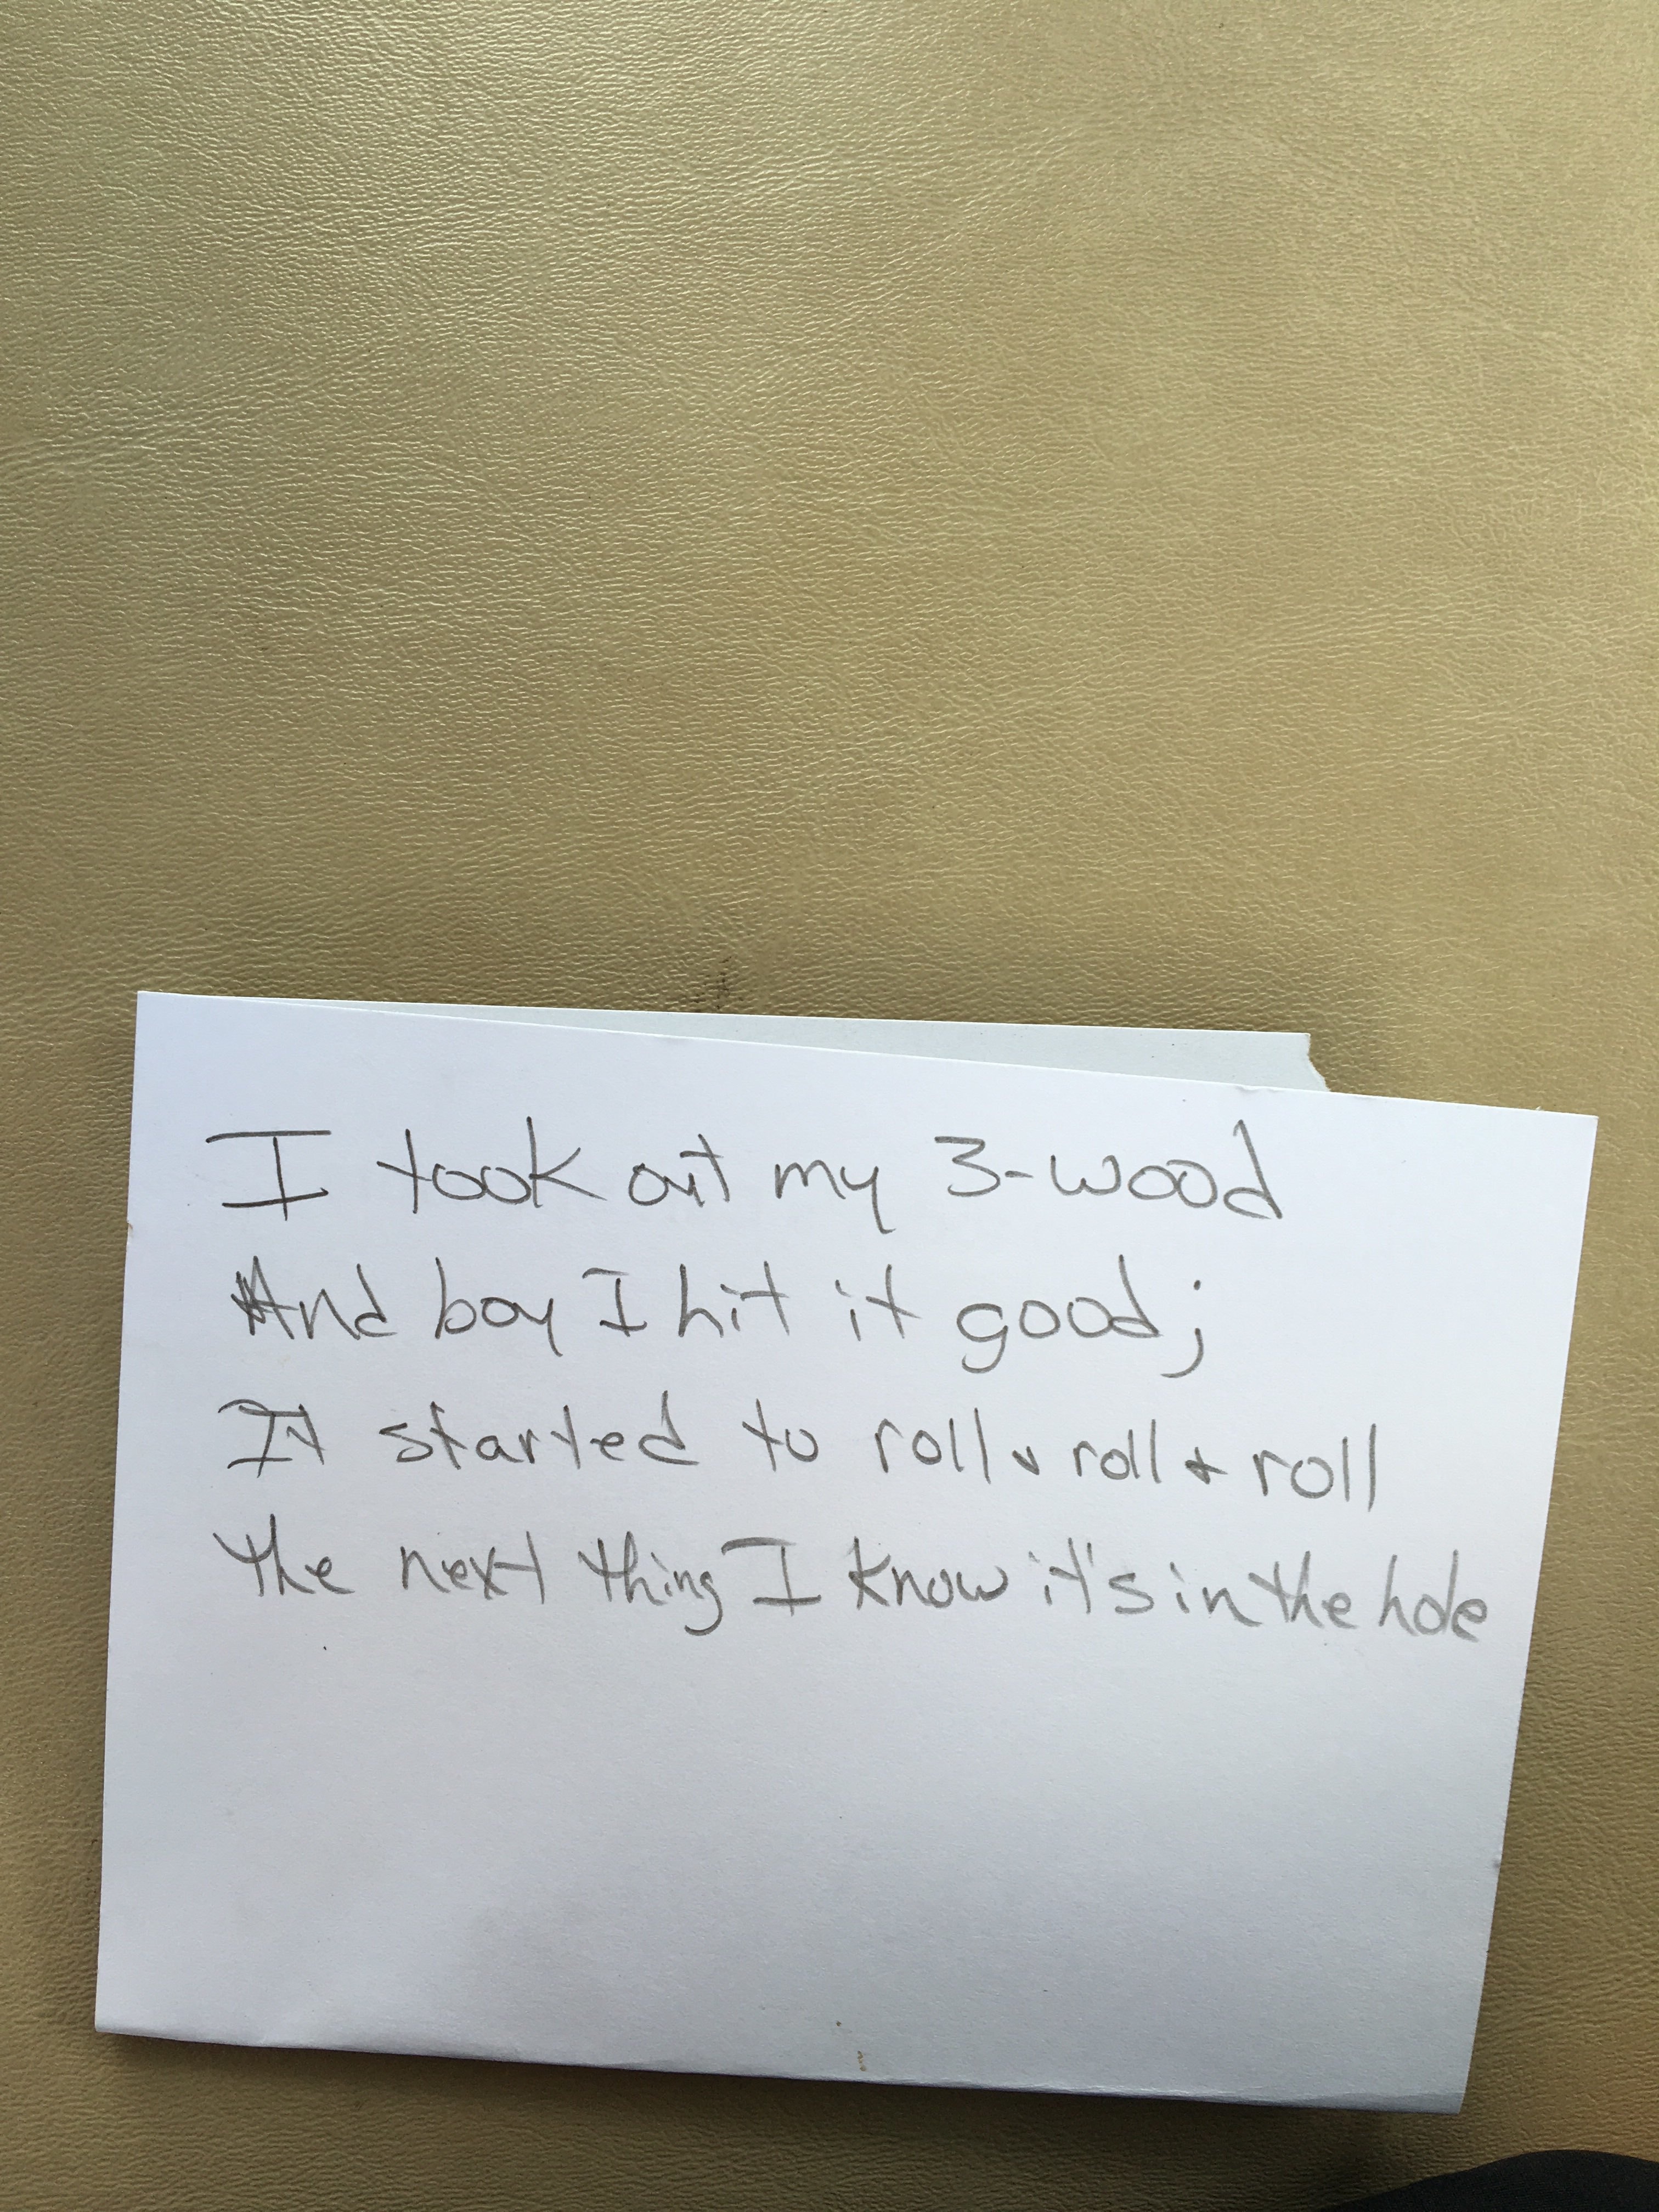 I took out my 3-wood
And boy I hit it good;
It started to roll & roll & roll
the next thing I know it's in the hole